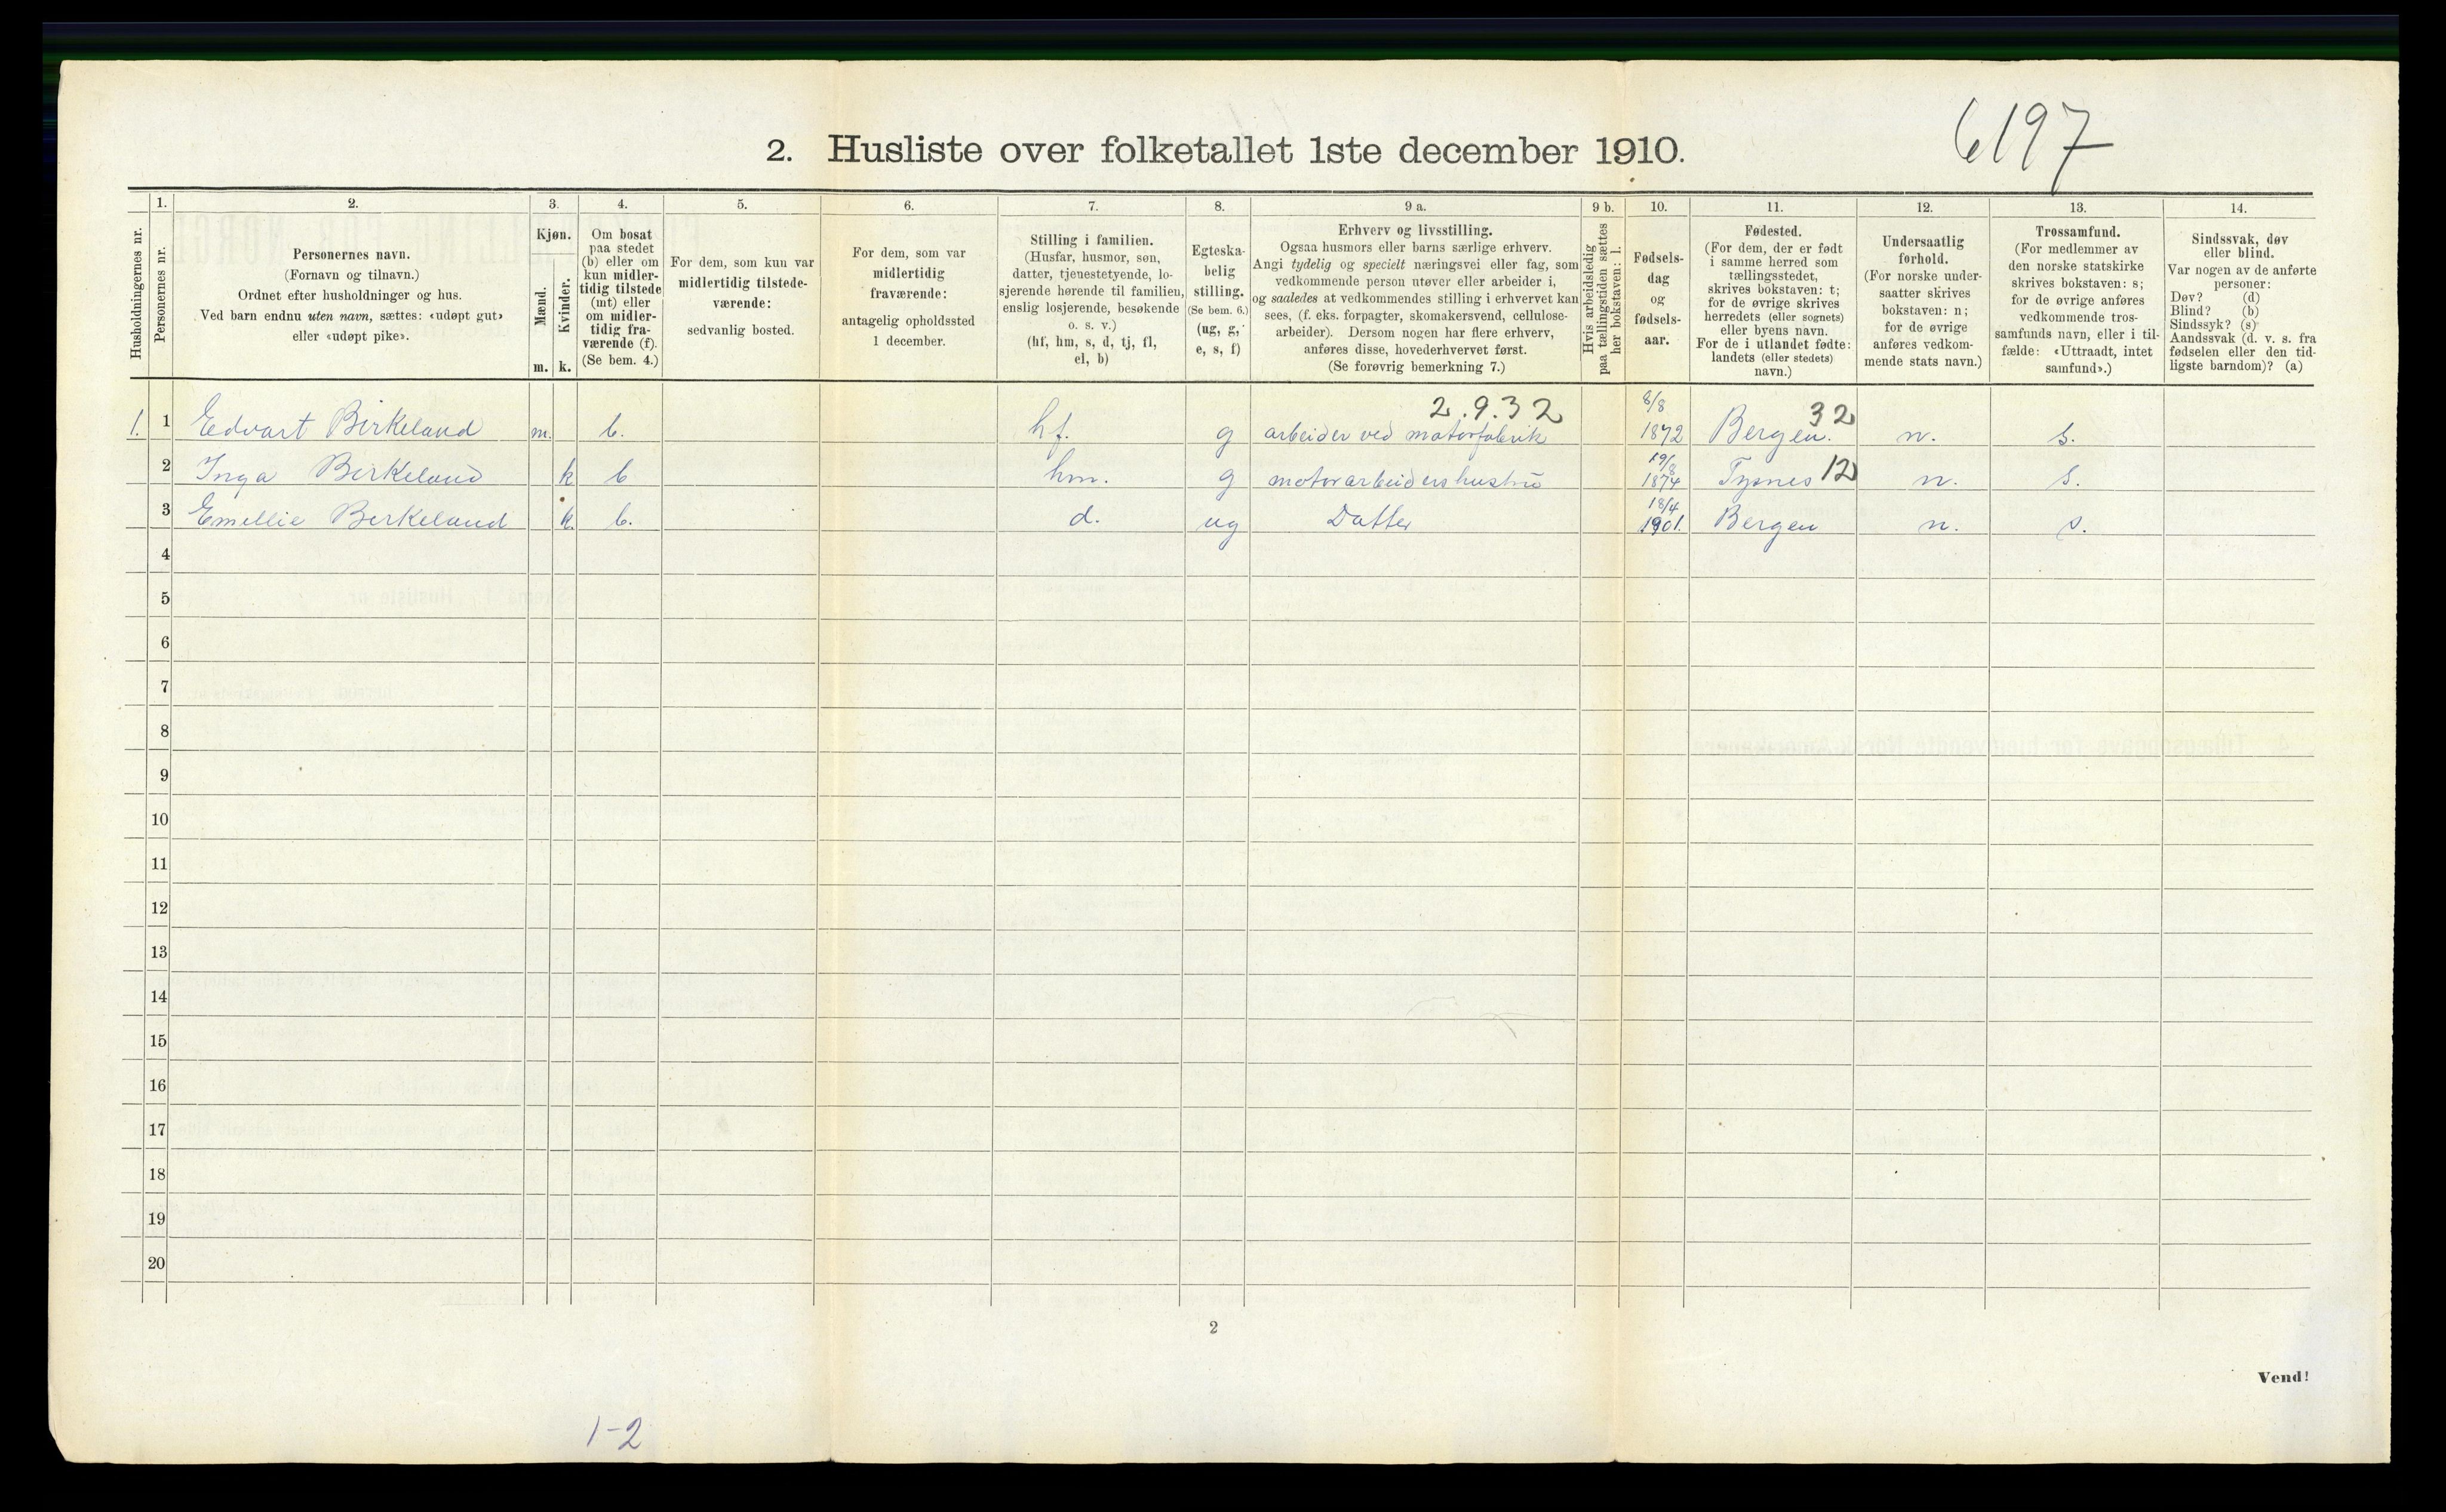 6197
2. Husliste over folketallet 1ste december 1910.
Husholdningernes nr.
1.
Personernes nr.
2.
Personernes navn.
(Fornavn og tilnavn.)
Ordnet efter husholdninger og hus.
Ved barn endnu uten navn, sættes: «udøpt gut»
eller «udøpt pike».
3.
Kjøn.
Mænd.
Kvinder.
m. k.
4.
Om bosat
paa stedet
(b) eller om
kun midler-
tidig tilstede
(mt) eller
om midler-
tidig fra-
værende (f).
(Se bem. 4.)
5.
For dem, som kun var
midlertidig tilstede-
værende:
sedvanlig bosted.
6.
For dem, som var
midlertidig
fraværende:
antagelig opholdssted
1 december.
7.
Stilling i familien.
(Husfar, husmor, søn,
datter, tjenestetyende, lo-
sjerende hørende til familien,
enslig losjerende, besøkende
o. s. v.)
(hf, hm, s, d, tj, fl,
el, b)
8.
Egteska-
belig
stilling.
(Se bem. 6.)
(ug, g,
e, s, f)
9 a.
Erhverv og livsstilling.
Ogsaa husmors eller barns særlige erhverv.
Angi tydelig og specielt næringsvei eller fag, som
vedkommende person utøver eller arbeider i,
og saaledes at vedkommendes stilling i erhvervet kan
sees, (f. eks. forpagter, skomakersvend, cellulose-
arbeider). Dersom nogen har flere erhverv,
anføres disse, hovederhvervet først.
(Se forøvrig bemerkning 7.)
9 b.
Hvis arbeidsledig
paa tællingstiden sættes
her bokstaven: l.
10.
Fødsels-
dag
og
fødsels-
aar.
11.
Fødested.
(For dem, der er født
i samme herred som
tællingsstedet,
skrives bokstaven: t;
for de øvrige skrives
herredets (eller sognets)
eller byens navn.
For de i utlandet fødte:
landets (eller stedets)
navn.)
12.
Undersaatlig
forhold.
(For norske under-
saatter skrives
bokstaven: n;
for de øvrige
anføres vedkom-
mende stats navn.)
13.
Trossamfund.
(For medlemmer av
den norske statskirke
skrives bokstaven: s;
for de øvrige anføres
vedkommende tros-
samfunds navn, eller i til-
fælde: «Uttraadt, intet
samfund».)
14.
Sindssvak, døv
eller blind.
Var nogen av de anførte
personer:
Døv? (d)
Blind? (b)
Sindssyk? (s)
Aandssvak (d. v. s. fra
fødselen eller den tid-
ligste barndom)? (a)
2.9.32 8/8 32
1. 1 Edvart Birkeland m. b. hf. g arbeider ved motorfabrik 1872 Bergen. n. s.
19/8 12
2 Inga Birkeland k b hm. g motorarbeidershustru 1874 Tysnes n. s.
18/4
3 Emellie Birkeland k. b. d. ug Datter 1901. Bergen n. s.
4
5
6
7
8
9
10
11
12
13
14
15
16
17
18
19
20
2
Vend!
1-2